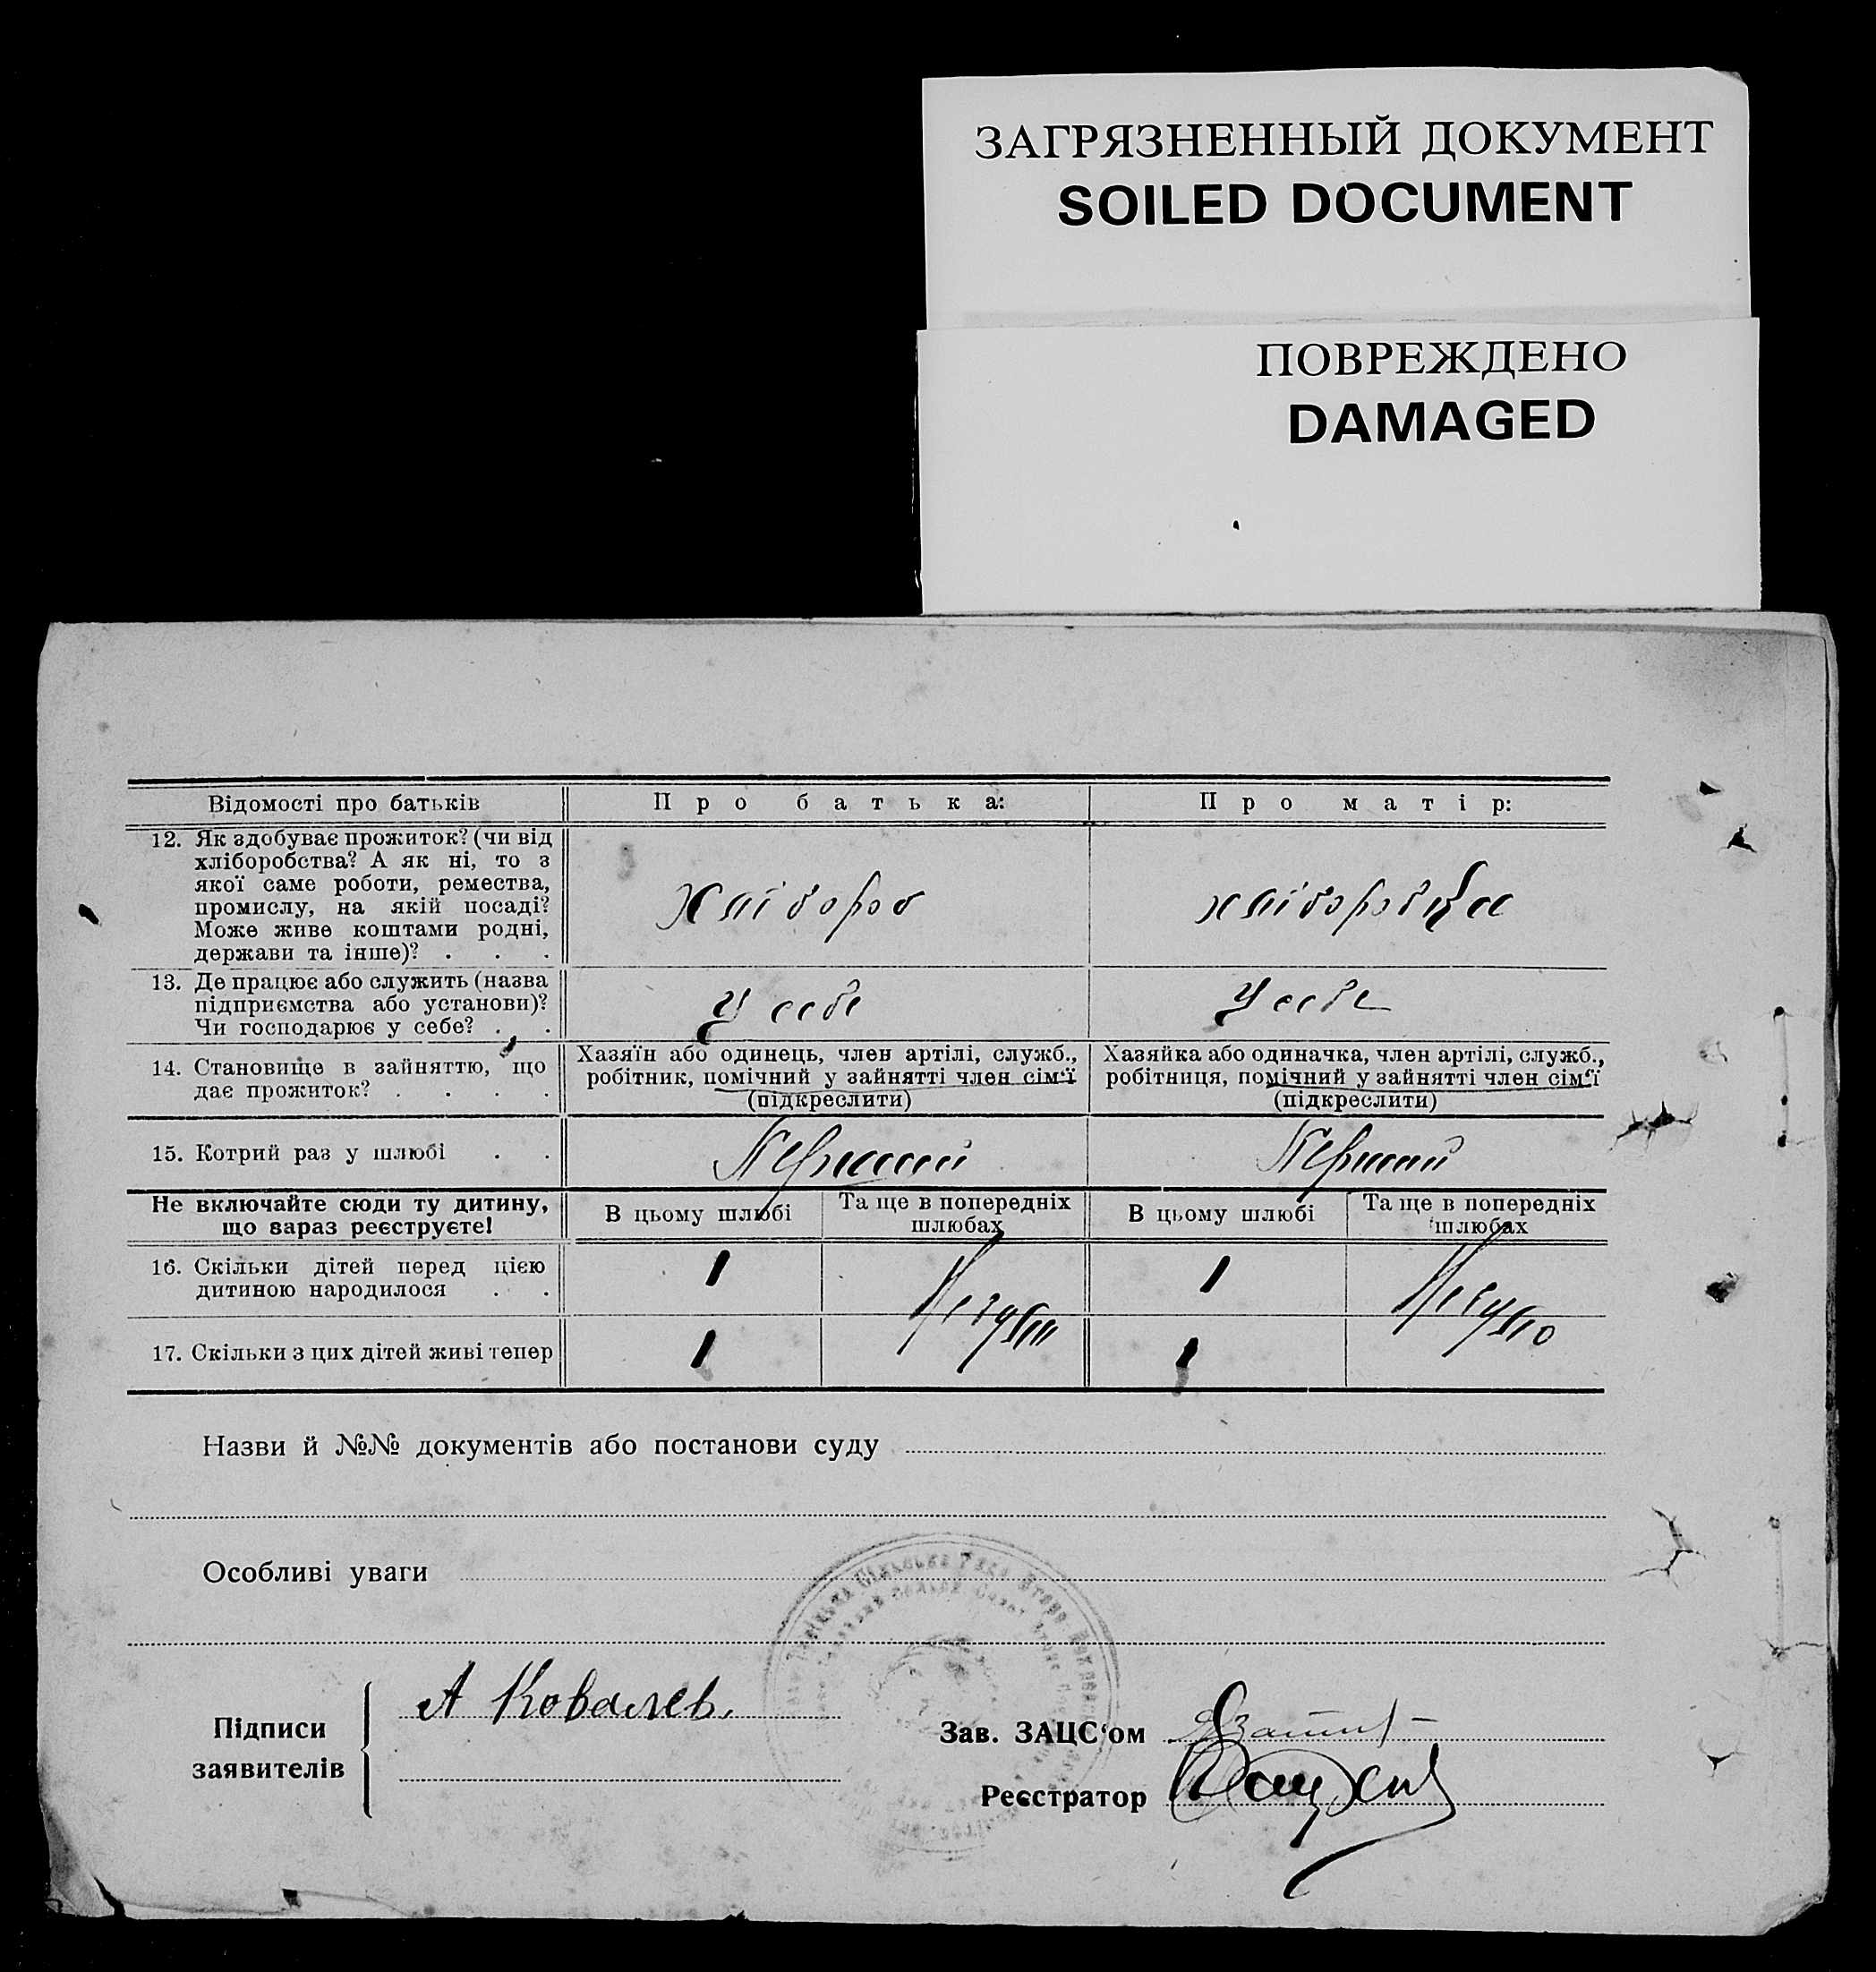 ЗАГРЯЗНЕННЫЙ ДОКУМЕНТ
SOILED DOCUMENT
ПОВРЕЖДЕНО
DAMAGED
Відомості про батьків
Про батька:
Про матір:
12. Як здобуває прожиток? (чи від
хліборобства? А як ні, то з
якої саме роботи, ремества,
промислу, на якій посаді?
Може живе коштами родні,
держави та інше)? . . .
хлібороб
хліборобка
13. Де працює або служить (назва
підприємства або установи)?
Чи господарює у себе? . .
У себе
У себе
14. Становище в зайняттю, що
дає прожиток? . . . .
Хазяїн або одинець, член артілі, служб.,
робітник, помічний у зайнятті член сім'ї
(підкреслити)
Хазяйка або одиначка, член артілі, служб.,
робітниця, помічний у зайнятті член сім'ї
(підкреслити)
15. Котрий раз у шлюбі . .
Перший
Перший
Не включайте сюди ту дитину,
що вараз реєструєте!
В цьому шлюбі
Та ще в попередніх
шлюбах
В цьому шлюбі
Та ще в попередніх
шлюбах
16. Скільки дітей перед цією
дитиною народилося . .
1
1
Не було
17. Скільки з цих дітей живі тепер
1
1
Назви й №№ документів або постанови суду
Особливі уваги
Підписи
заявителів
А Ковалев.
Зав. ЗАЦС'ом
Реєстратор